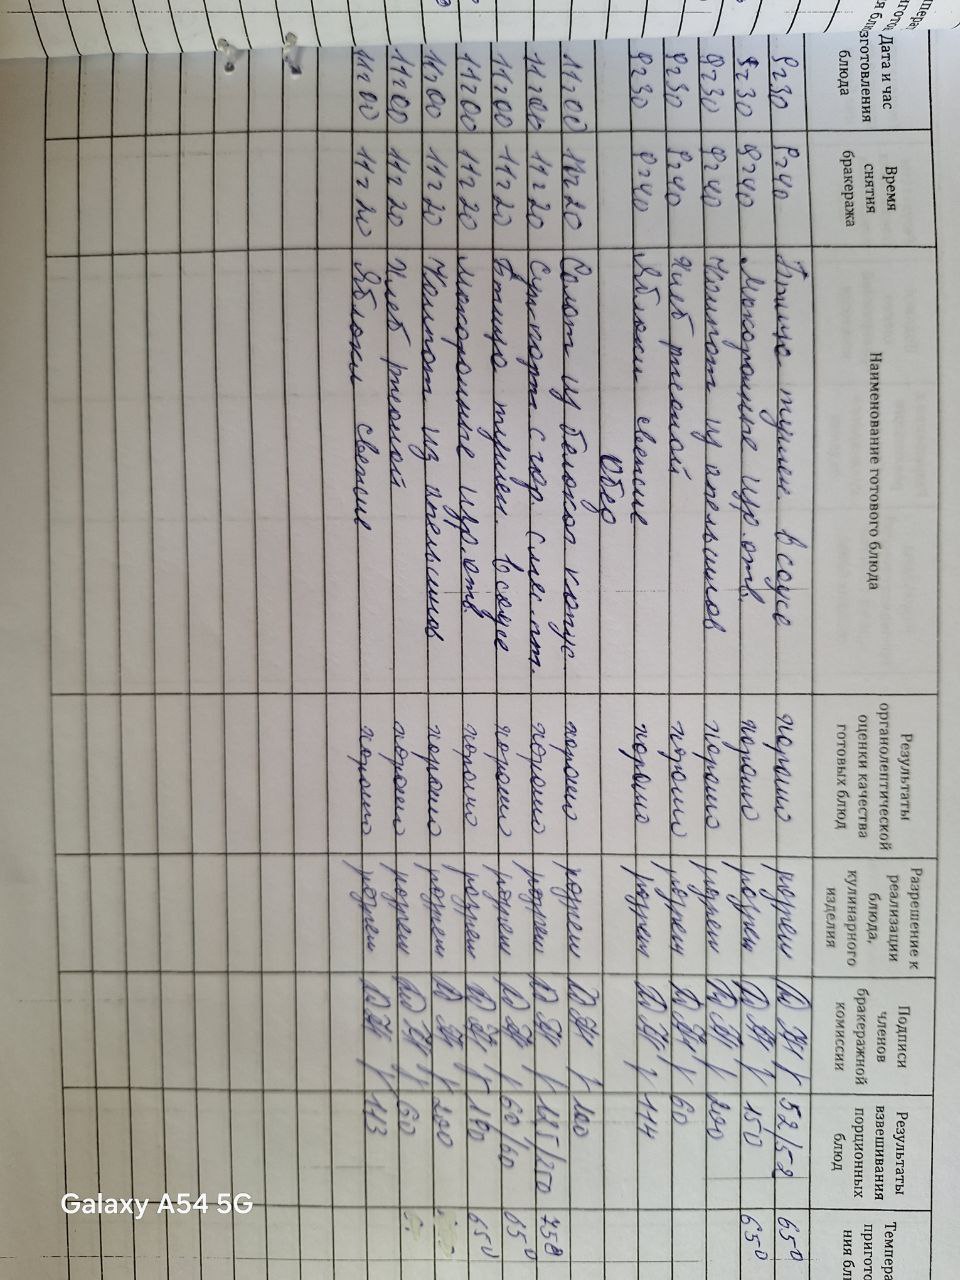 Дата и час изготовления блюда
Время снятия бракеража
Наименование готового блюда
Результаты органолептической оценки качества готовых блюд
Разрешение к реализации блюда, кулинарного изделия
Подписи членов бракеражной комиссии
Результаты взвешивания порционных блюд
Темпера пригото ния бл
9ч30 9ч40 Птица тушен. в соусе хорошо разреш 52/52 65°
9ч30 9ч40 Макаронные изд. отв. хорошо разреш 150 65°
9ч30 9ч40 Компот из апельсинов хорошо разреш 200
9ч30 9ч40 Хлеб ржаной хорошо разреш 60
9ч30 9ч40 Яблоки свежие хорошо разреш 114
Обед
11ч00 11ч20 Салат из белокоч капус хорошо разреш 100
11ч00 11ч20 Суп карт. с гор. с мяс. пт. хорошо разреш /250 75°
11ч00 11ч20 Птица тушен. в соусе хорошо разреш 60/60 65°
11ч00 11ч20 Макаронные изд. отв. хорошо разреш 190 65°
11ч00 11ч20 Компот из апельсинов хорошо разреш 200
11ч00 11ч20 Хлеб ржаной хорошо разреш 60
11ч00 11ч20 Яблоки свежие хорошо разреш 113
Galaxy A54 5G